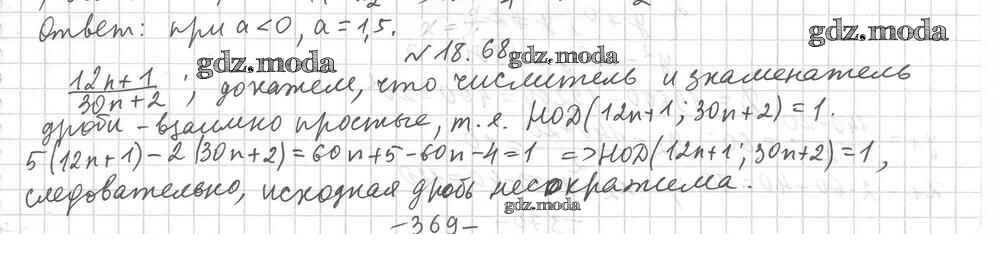 Ответ: при a<0, a=1,5.
gdz.moda
№ 18.68
gdz.moda
gdz.moda
(12n+1)/(30n+2) ; докажем, что числитель и знаменатель
дроби - взаимно простые, т.е. НОД(12n+1; 30n+2)=1.
5(12n+1)-2(30n+2)=60n+5-60n-4=1 => НОД(12n+1; 30n+2)=1,
следовательно, исходная дробь несократима.
gdz.moda
-369-